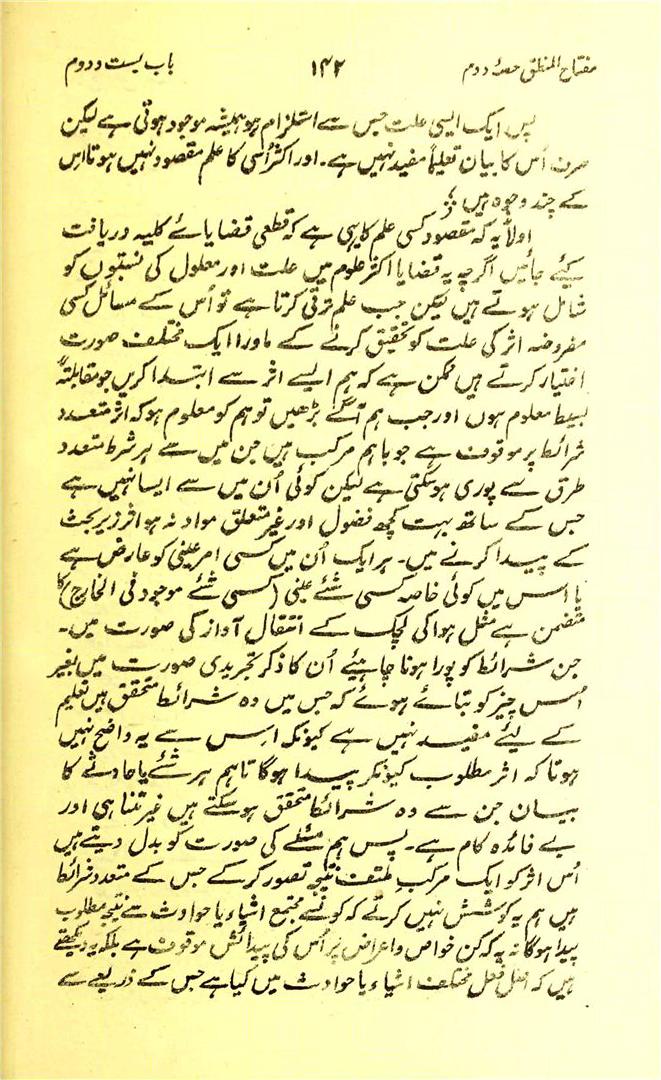 مفتاح المنطق حصۂ دوم ۱۴۲ باب بست و دوم
پس ایک ایسی علت جس سے استلزام ہو ہمیشہ موجود ہوتی ہے لیکن
صرف اُس کا بیان تعلیماً مفید نہیں ہے۔ اور اکثر اُسی کا علم مقصود نہیں ہوتا اس
کے چند وجوہ ہیں؛
اولاً یہ کہ مقصود کسی علم کا یہی ہے کہ قطعی قضایائے کلیہ دریافت
کیئے جائیں اگرچہ یہ قضایا اکثر علوم میں علت اور معلول کی نسبتوں کو
شامل ہوتے ہیں لیکن جب علم ترقی کرتا ہے تو اُس کے مسائل کسی
مفروضہ اثر کی علت کو تحقیق کرنے کے ماورا ایک مختلف صورت
اختیار کرتے ہیں ممکن ہے کہ ہم ایسے اثر سے ابتدا کریں جو مقابلتہً
بسیط معلوم ہوں اور جب ہم آگے بڑھیں تو ہم کو معلوم ہو کہ اثر متعدد
شرائط پر موقوف ہے جو باہم مرکب ہیں جن میں سے ہر شرط متعدد
طرق سے پوری ہو سکتی ہے لیکن کوئی اُن میں سے ایسا نہیں ہے
جس کے ساتھ بہت کچھ فضول اور غیر متعلق مواد نہ ہو اثر زیر بحث
کے پیدا کرنے میں۔ ہر ایک اُن میں کسی امر عینی کو عارض ہے
یا اس میں کوئی خاصہ کسی شئے عینی (کسی شئے موجود فی الخارج) کا
متضمن ہے مثل ہوا کی لچک کے انتقال آواز کی صورت میں۔
جن شرائط کو پورا ہونا چاہیئے اُن کا ذکر تجریدی صورت میں بغیر
اُس چیز کو بتائے ہوئے کہ جس میں وہ شرائط متحقق ہیں تعلیم
کے لیئے مفید نہیں ہے کیونکہ اِس سے یہ واضح نہیں
ہوتا کہ اثر مطلوب کیونکر پیدا ہوگا تاہم ہر شئے یا حادثے کا
بیان جن سے وہ شرائط متحقق ہو سکتے ہیں غیر متناہی اور
بے فائدہ کام ہے۔ پس ہم مسئلے کی صورت کو بدل دیتے ہیں
اُس اثر کو ایک مرکب ملتف نتیجہ تصور کر کے جس کے متعدد شرائط
ہیں ہم یہ کوشش نہیں کرتے کہ کونسے مجتمع اشیاء یا حوادث سے نتیجہ مطلوب
پیدا ہوگا نہ یہ کہ کن خواص و اعراض پر اُس کی پیدائش موقوف ہے بلکہ یہ دیکھتے
ہیں کہ اصل فعل مختلف اشیاء یا حوادث میں کیا ہے جس کے ذریعے سے